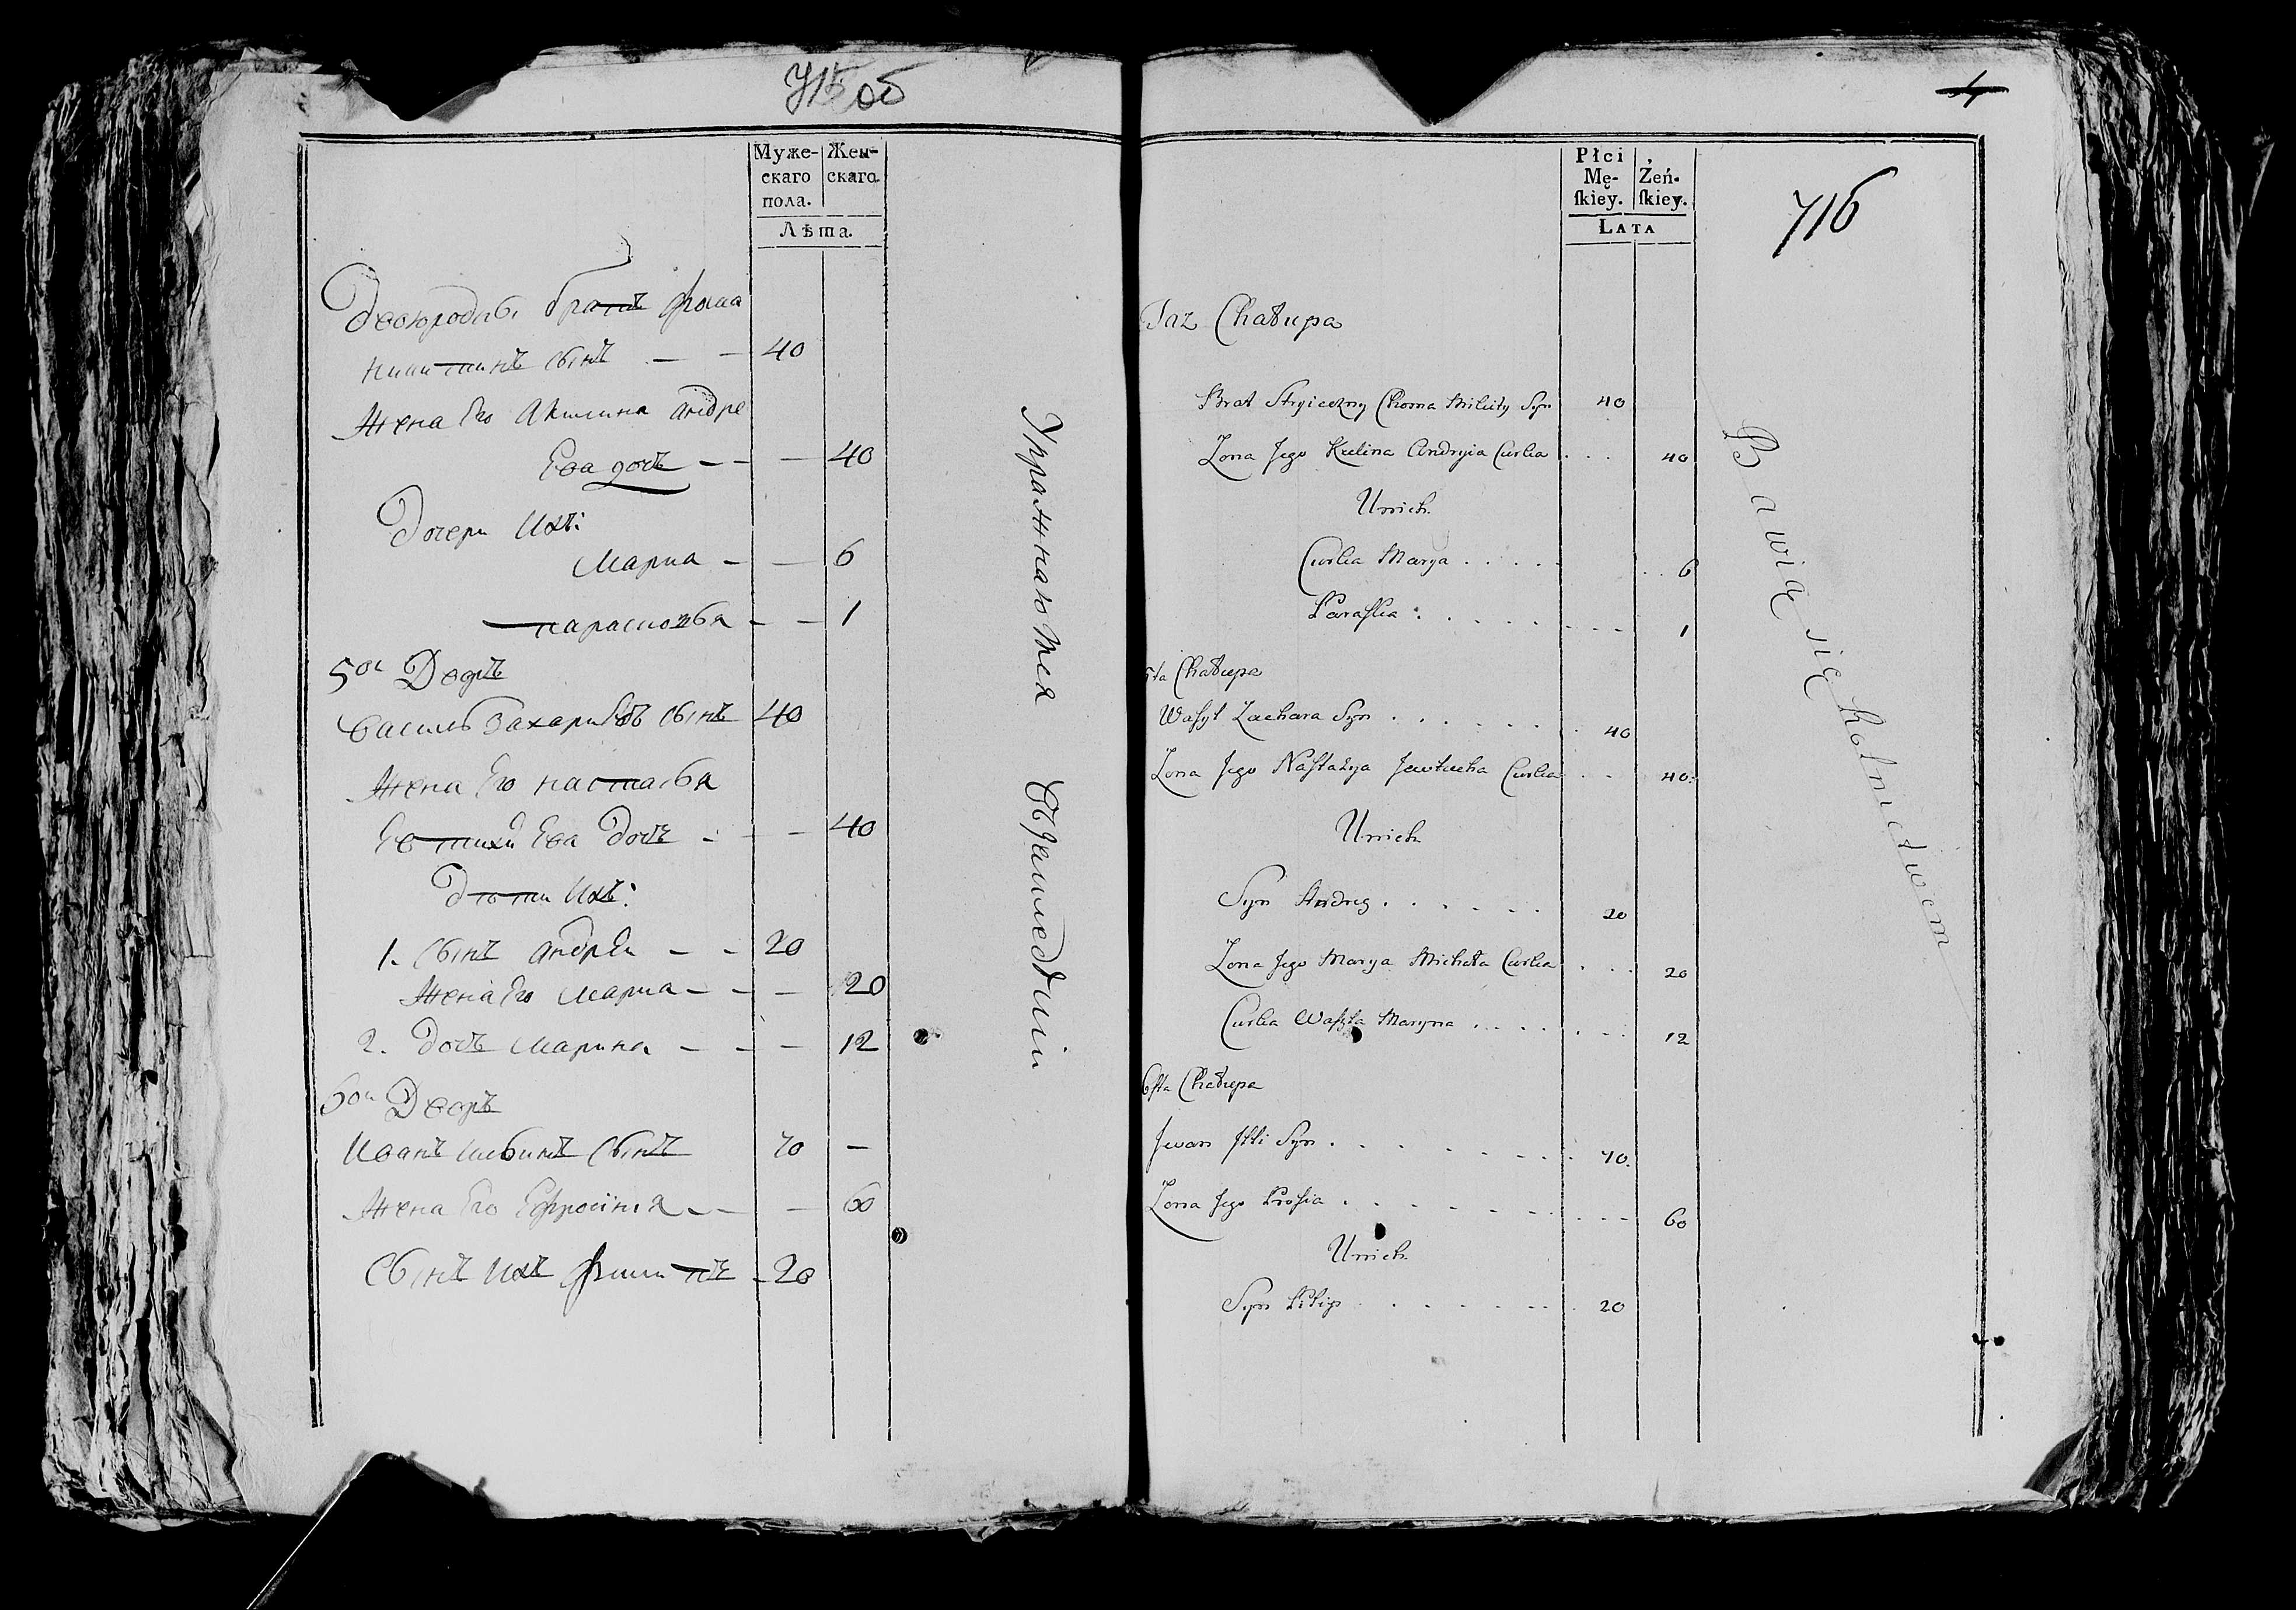 715 об
Муже-
скаго
пола.
Жен-
скаго.
Лѣта.
Двоюродн. братъ Фома
никитинъ сынъ — — 40
Жена Его Акилина Андре
Ева дочь — — — 40
Дочери Ихъ:
Мариа — — 6
парасковья — — 1
5ой Дворъ
василь Захариевъ сынъ 40
Жена Его настасья
Евтихиева дочь — — 40
Дѣти Ихъ:
1. Сынъ Андрей — — 20
Жена Его Мариа — — — 20
2. дочь Марина — — — 12
6ой Дворъ
Иванъ ильинъ Сынъ 70 —
Жена Его Ефросиния — — 60
Сынъ Ихъ Филипъ — 20
Упражнаются
4
716
Płci
Mę-
ſkiey.
Żeń-
ſkiey.
LATA
Taz Chałupa
Brat Stryieczny Choma Mikity Syn 40
Zona Jego Kulina Andryia Curka . . . 40
Unich
Curka Marya . . . . . 6
Paraſka . . . . . . . 1
5ta Chałupa
Waſyl Zachara Syn . . . . . . 40
Zona Jego Naſtazya Jewtucha Curka . . 40.
Unich
Syn Andrey . . . . . . 20
Zona Jego Marya Michała Curka . . . 20
Curka Waſyla Maryna . . . . . . 12
6ſta Chałupa
Jwan Jlli Syn . . . . . . . 70.
Zona Jego Proſia . . . . . . . 60
Unich
Syn Filip . . . . . . . 20
Bawią się Rolnictwem